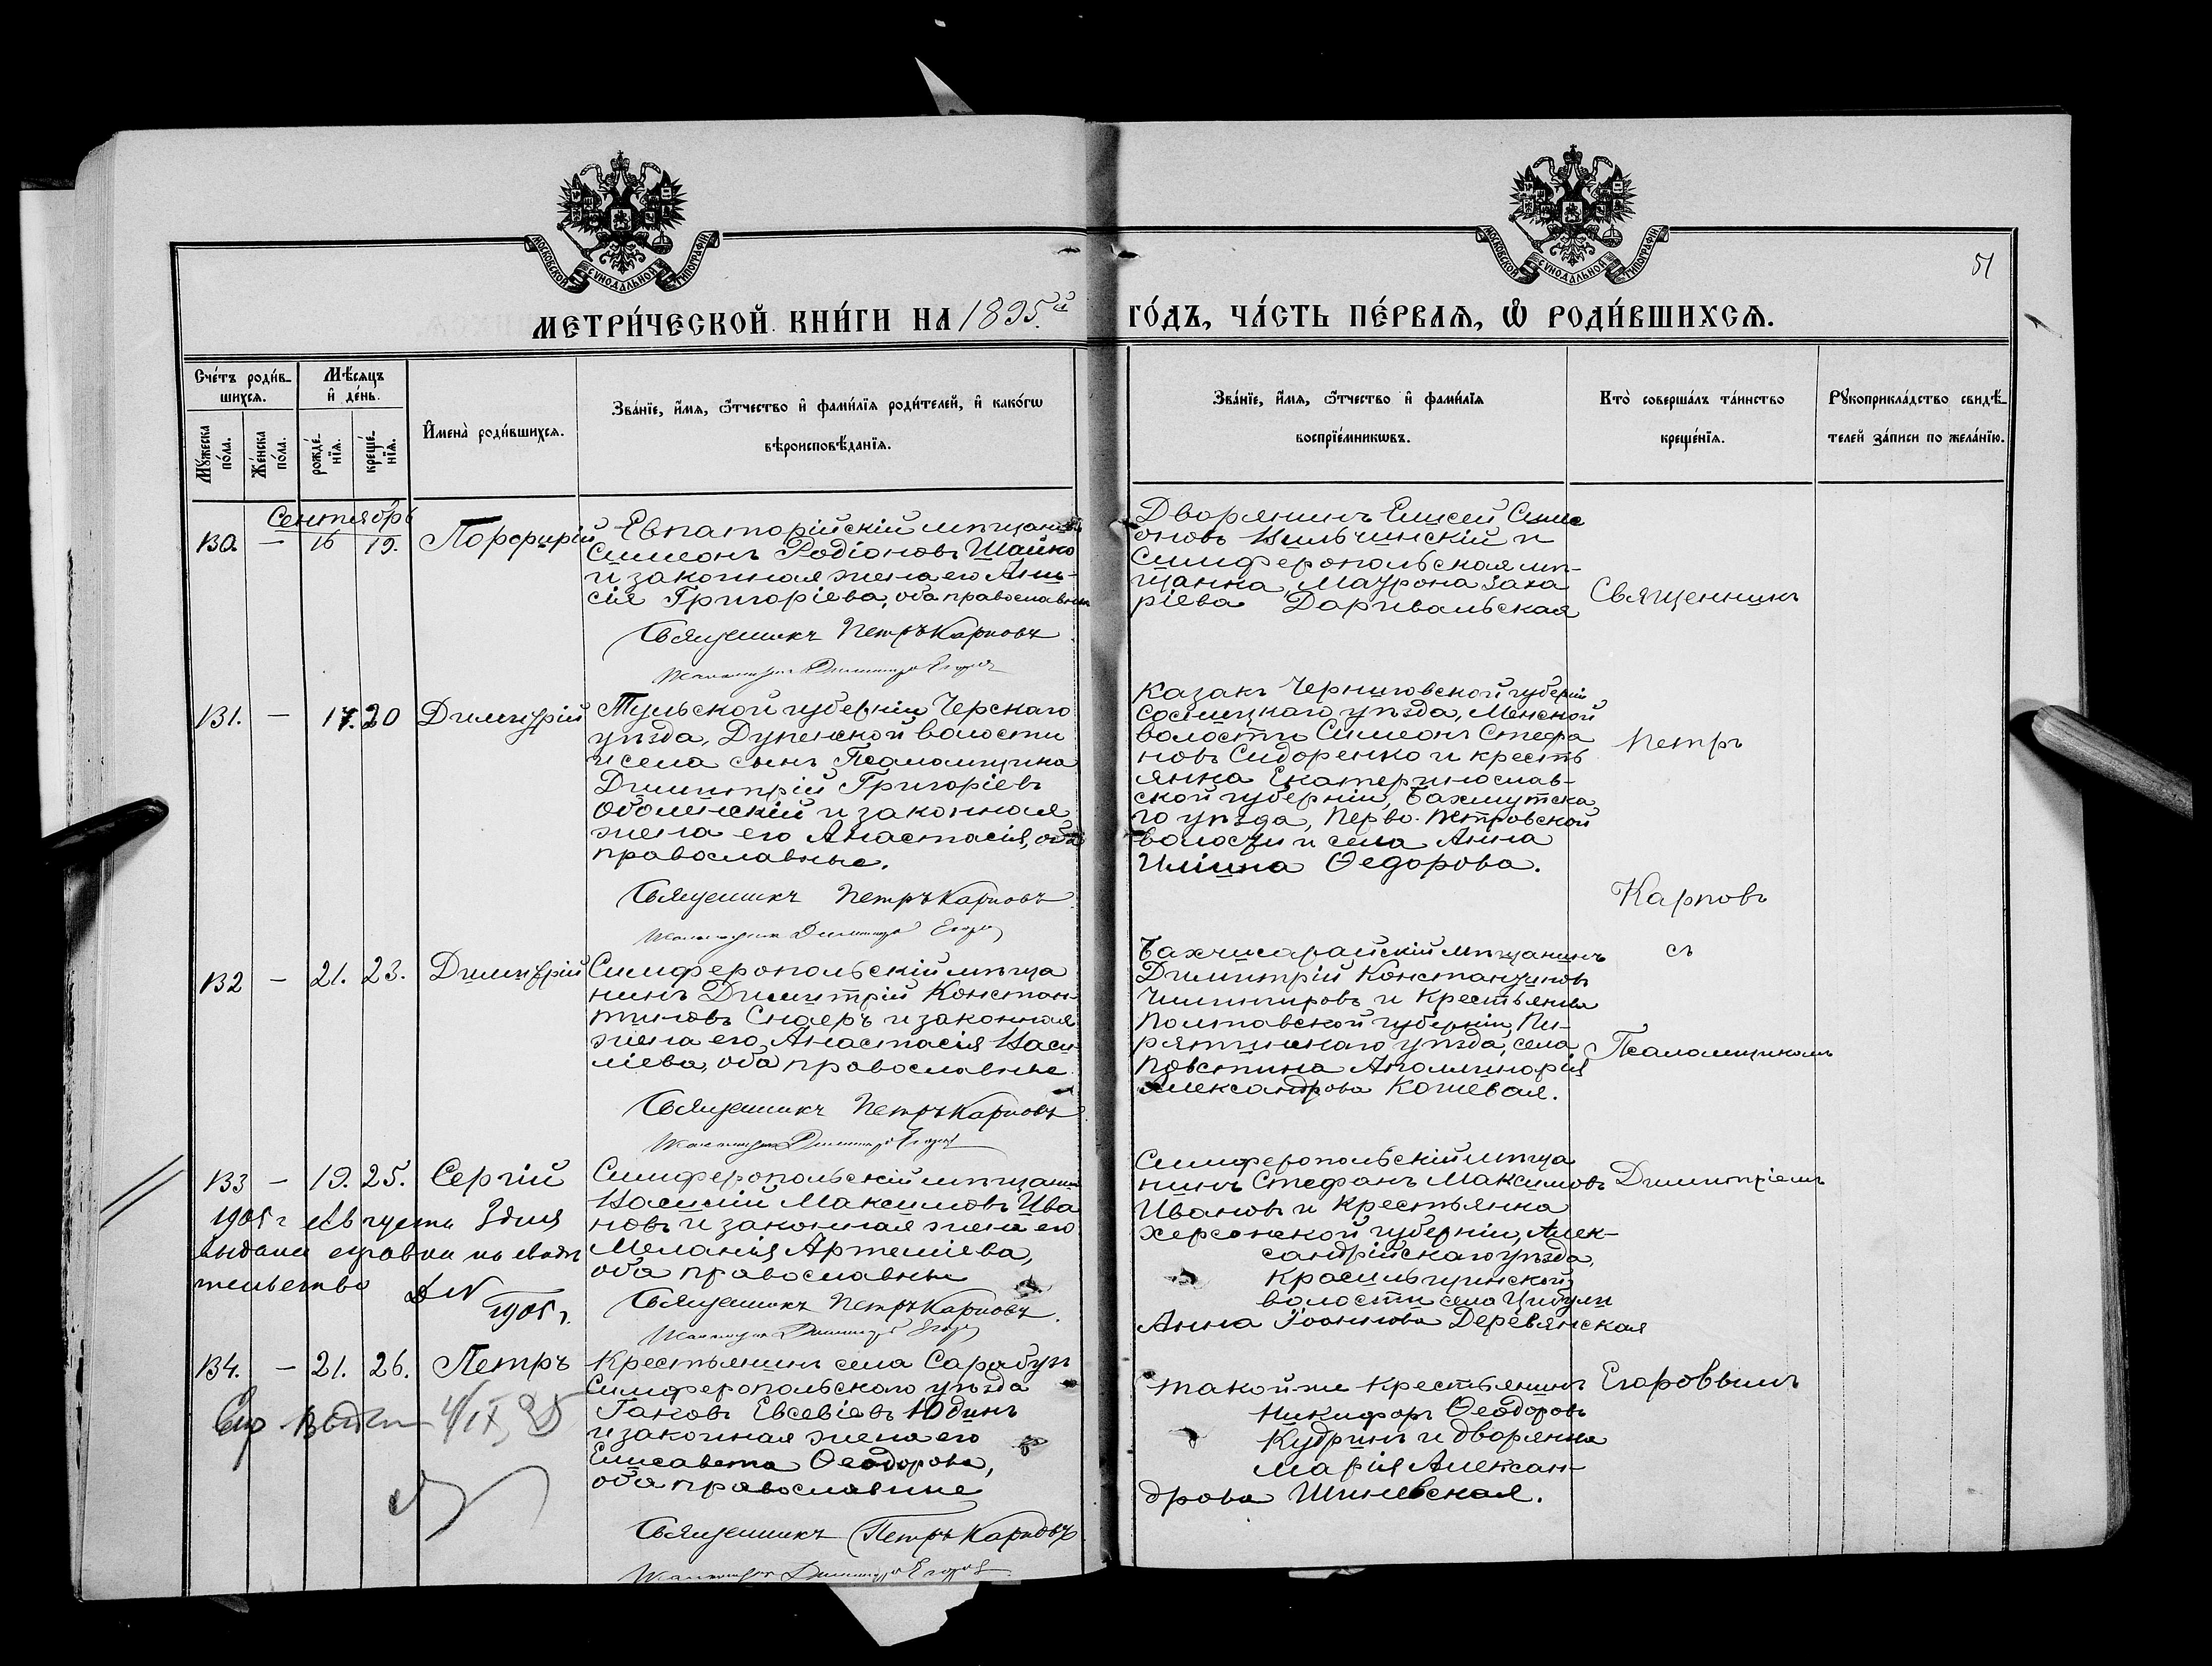 МОСКОВСКОЙ СѴНОДАЛЬНОЙ ТИПОГРАФІИ
МОСКОВСКОЙ СѴНОДАЛЬНОЙ ТИПОГРАФІИ
51
МЕТРИ́ЧЕСКОЙ КНИ́ГИ НА 1895.й ГО́ДЪ, ЧА́СТЬ ПЕ́РВАѦ, Ѿ РОДИ́ВШИХСѦ.
Сче́тъ роди́в-
шихсѧ.
Мꙋ́жеска по́ла.
Же́нска по́ла.
Мѣ́сѧцъ
и҆ де́нь.
рожде́-
нїѧ.
креще́-
нїѧ.
И҆мена̀ роди́вшихсѧ.
Зва́нїе, и҆́мѧ, ѻ҆́тчество и҆ фами́лїѧ роди́телей, и҆ како́гѡ
вѣроисповѣ́данїѧ.
Зва́нїе, и҆́мѧ, ѻ҆́тчество и҆ фами́лїѧ
воспрїе́мникѡвъ.
Кто̀ соверша́лъ та́инство
креще́нїѧ.
Рꙋкоприкла́дство свидѣ́-
телей за́писи по жела́нїю.
Сентябрь
130. — 16 19. Порфирій
Евпаторійскій мѣщанинъ
Симеонъ Родіоновъ Шайко
и законная жена его Ани-
сія Григоріева, оба православные
Священникъ Петръ Карповъ
Псаломщикъ Димитрій Егоровъ
Дворянинъ Елисей Симе
оновъ Вильчинскій и
Симферопольская мѣ-
щанка Маурона Заха
ріева Даривальская
Священникъ
131. — 17. 20 Димитрій
Тульской губерніи Черскаго
уѣзда, Дупенской волости
и села сынъ Псаломщика
Димитрій Григоріевъ
Оболенскій и законная
жена его Анастасія, оба
православные.
Священникъ Петръ Карповъ
Псаломщикъ Димитрій Егоровъ
Казакъ Черниговской губерніи
Сосницкаго уѣзда, Менской
волости Симеонъ Стефа
новъ Сидоренко и кресть
янка Екатеринослав-
ской губерніи, Бахмутска
го уѣзда, Перво-Петровской
волости и села Анна
Ильина Ѳедорова.
Петръ
Карповъ
132 — 21. 23. Димитрій
Симферопольскій мѣща
нинъ Димитрій Констан-
тиновъ Склеръ и законная
жена его Анастасія Васи
ліева, оба православные
Священникъ Петръ Карповъ
Псаломщикъ Димитрій Егоровъ
Бахчисарайскій мѣщанинъ
Димитрій Константиновъ
Чинтировъ и крестьянка
Полтавской губерніи, Пи-
рятинскаго уѣзда, села
Александрова Кошевая.
съ
Псаломщикомъ
133 — 19. 25. Сергій
1905 г Августа 3 дня
выдана справка
1905 г.
Симферопольскій мѣщанинъ
Василій Максимовъ Ива
новъ и законная жена его
Меланія Артеміева,
оба православные
Священникъ Петръ Карповъ.
Псаломщикъ Димитрій Егоровъ
Симферопольскій мѣща
нинъ Стефанъ Максимовъ
Ивановъ и крестьянка
Херсонской губерніи, Алек-
сандрійскаго уѣзда,
волости села Цибули
Анна Іоаннова Деревянская
Димитріемъ
134. — 21. 26. Петръ
4/IX 25
Крестьянинъ села Сарабузъ
Симферопольскаго уѣзда
Іаковъ Евсевіевъ Юдинъ
и законная жена его
Елисавета Ѳеодорова,
оба православные
Священникъ Петръ Карповъ
Псаломщикъ Димитрій Егоровъ
такой-же крестьянинъ
Никифоръ Ѳеодоровъ
Кудринъ и дворянка
Марія Алексан-
дрова Шиневская.
Егоровымъ